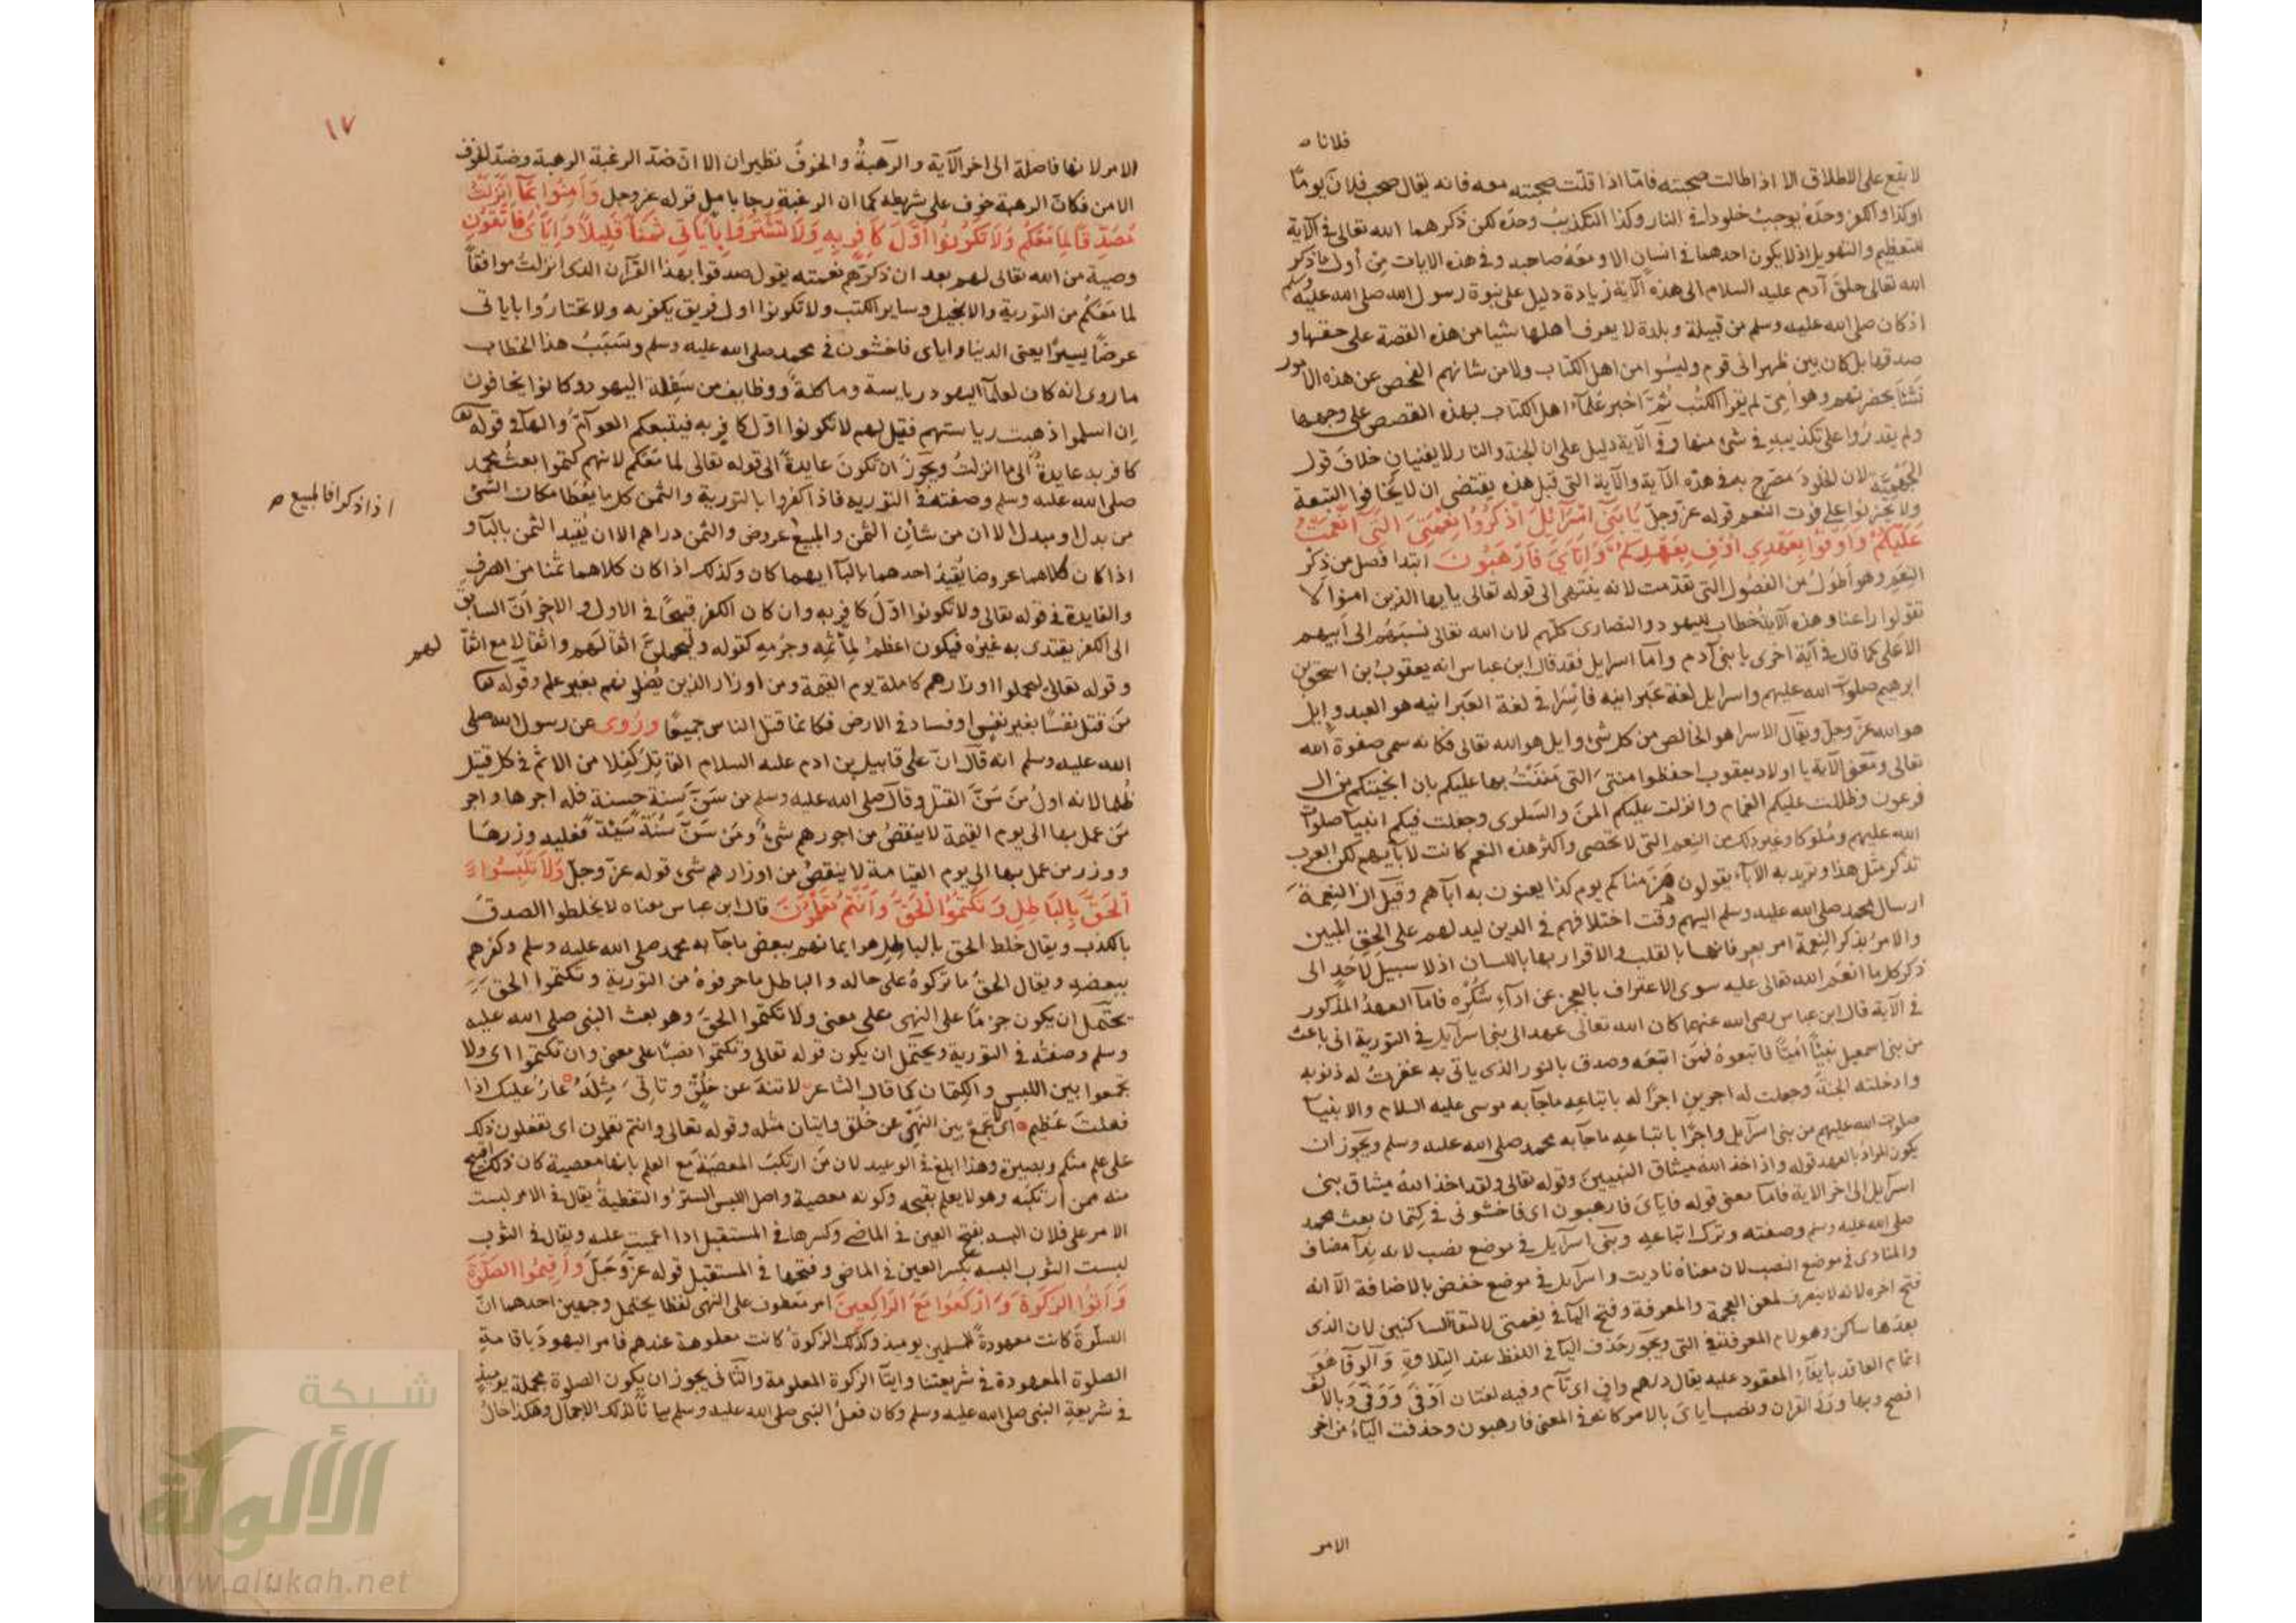 فلانا ص
لا يقع على الاطلاق الا اذا طالت صحبته فامّا اذا قلّت صحبته معه فانه يقال صحب فلان يومًا
اوكذا والكفر وحدَه يوجبُ خلودًا في النار وكذا التكذيبُ وحدَه لكن ذكرهما الله تعالى في الآية
للتعظيم والتهويل اذ لا يكون احدهما في انسان الا ومعَهُ صاحبه وفي هذه الايات مِن أول ما ذكر
الله تعالى خلقَ آدم عليه السلام الى هذه الآية زيادة دليل على نبوة رسول الله صلى الله عليه وسلم
اذ كان صلى الله عليه وسلم من قبيلة وبلدة لا يعرف اهلها شيا من هذه القصة على حقها و
صدقها بل كان بين ظهرانى قوم وليسُوا من اهل الكتاب ولا من شانهم الفحص عن هذه الامور
نشأ بحضرتهم وهو أمّى لم يقرأ الكتُب ثمّ اخبر علمآء اهل الكتاب بهذه القصص على وجهها
ولم يقدرُوا على تكذيبه في شئ منها وفي الآية دليل على ان الجنة والنار لا يفنيان خلافَ قول
الجَهْمِيَّة لان الخلودَ مصَرح به في هذه الآية والآية التي قبل هذه يقتضي ان لا يخافوا التبعة
ولا يحزنوا على فوت النعيم قوله عزّ وجلّ يَا بَنِي اسْرَآئِيلَ اذْكُرُوا نِعْمَتِيَ الَّتِي اَنْعَمْتُ
عَلَيْكُمْ وَاَوْفُوا بِعَهْدِي اُوفِ بِعَهْدِكُمْ وَاِيَّايَ فَارْهَبُونَ ابتدا فصل من ذكر
النِعَم وهو أطولُ من الفصُول التي تقدّمت لانه ينتهى الى قوله تعالى يايها الذين امنوا لا
تقولوا راعنا وهذه الآيةُ خطاب لليهود والنصارى كلّهم لان الله تعالى نسبَهُم الى اَبيهم
الاَعلى كما قال في آية اخرى يا بنى آدم وأما اسرايل فقد قال ابن عباس انه يعقوبُ بن اسحق بن
ابرهيم صلوات الله عليهم واسرايل لغة عبرانيه فاسْرا في لغة العَبرانيه هو العبد وايل
هو الله عزّ وجلّ ويقال الاسرا هو الخالص من كل شئ وايل هو الله تعالى فكانه سمى صفوة الله
تعالى ومعنى الآية يا اولاد يعقوب احفظوا منتى التى مننتُ بها عليكم بان انجيتكم من ال
فرعون وظللت عليكم الغمام وانزلت عليكم المنّ والسَلوى وجعلت فيكم انبيآ صلوات
الله عليهم ومُلوكا وغير ذلك من النِعم التى لا تحصى واكثر هذه النعم كانت لآبآيهم لكن العرب
تذكر مثل هذا وتريد به الآبآء يقولون هزمناكم يوم كذا يعنون به ابآهم وقيل ان النِعمة
ارسال محمد صلى الله عليه وسلم اليهم وقت اختلافهم في الدين ليدلهم على الحق المبين
والامرُ بذكر النِعمة امر بعرفانها بالقلب والاقرار بها باللسان اذ لا سبيل لاَحدٍ الى
ذكر كل ما انعَم الله تعالى عليه سوى الاعتراف بالعجز عن ادآء شكره فامّا العهدُ المذكور
في الآية قال ابن عباس رضى الله عنهما كان الله تعالى عهد الى بنى اسرآيل في التورية انى باعث
من بنى اسمعيل نبيًّا اُميّا فاتبعوهُ فمن اتبعَه وصدق بالنور الذى ياتى به غفرتُ له ذنوبه
وادخلته الجنة وجعلت له اجرين اجرًا له باتباعِه ما جآ به موسى عليه السلام والانبيآ
صلوات الله عليهم من بنى اسرآيل واجرًا باتباعه ما جآ به محمد صلى الله عليه وسلم ويجوز ان
يكون المرادُ بالعهد قوله واذ اخذ الله ميثاق النبيينَ وقوله تعالى ولقد اخذ اللهُ ميثاق بنى
اسرآيل الى اخر الآية فامّا معنى قوله فاياىَ فارهبون اى فاخشونى في كِتمان بعث محمد
صلى الله عليه وسلم وصفته وترك اتباعه وبنى اسرآيل في موضع نصب لانه نِدآ مضاف
والمنادى في موضع النصب لان معناهُ ناديت واسرآيل في موضع خفض بالاضافة الّا انه
فتح اخره لانه لا ينصرف لمعنى العجمة والمعرفة وفتح اليآ في نِعمتى لالتقآ الساكنين لان الذى
بعدَها ساكن وهو لام المعرفة في التى ويجوز حذف اليآ في اللفظ عند التِلاوة والوفا هُوَ
اتمام العاقد بايفآء المعقود عليه يقال درهم وافٍ اى تآم وفيه لغتان اَوْفَى وَوَفَى وبالالف
افصح وبها ورَدَ القران ونصب اياىَ بالامر كانه في المعنى فارهبون وحذفت اليآءُ من اخر
الامر
١٧
الامر لانها فاصلة الى اخر الآية والرَّهبةُ والخوفُ نظيران الا انّ ضدّ الرغبة الرهبة وضدّ الخوف
الامن فكانّ الرهبة خوف على شريطه كما ان الرغبة رجا بامل قوله عزوجل وَآمِنُوا بِمَا اَنْزَلْتُ
مُصَدِّقًا لِمَا مَعَكُمْ وَلاَ تَكُونُوا اَوَّلَ كَافِرٍ بِهِ وَلاَ تَشْتَرُوا بِآيَاتِي ثَمَنًا قَلِيلاً وَاِيَّايَ فَاتَّقُونِ
وصية من الله تعالى لهم بعد ان ذكّرهم نعمته يقول صدقوا بهذا القرآن الذى انزلتُ موافقاً
لما مَعَكُم من التورية والانجيل وساير الكتب ولا تكونوا اول فريق يكفر به ولا تختارُوا باياتى
عرضاً يَسِيرًا يعنى الدينا واياى فاخشون في محمد صلى الله عليه وسلم وسَبَبُ هذا الخطاب
ما روى انه كان لعلمآ اليهود رياسة وماكلة ووظايف من سَفِلة اليهود وكانوا يخافون
اِن اسلموا ذهبت رياستهم فقيل لهم لا تكونوا اوّل كافِرٍ به فيتبعكم العوآمّ والهآ في قوله تعا
كافر به عايدةٌ الى ما انزلتُ ويجوز ان تكونَ عايدةً الى قوله تعالى لما مَعَكم لانهم كتموا بعثُ محمد
صلى الله عليه وسلم وصفته في التوريه فاذا كفروا بالتورية والثمن كل ما يُعْطَا مكان الشئ
من بدل او مبدل الا ان من شأن الثمن والمبيع عروض والثمن دراهم الا ان يُقيد الثمن بالبآ و
اذا ذكر افا لمبيع ص
اذا كان كلاهما عروضا يُقيدُ احدهما بالبآ ايهما كان وكذلك اذا كان كلاهما ثمنا من الصرف
والفايدة في قوله تعالى ولا تكونوا اوّلَ كافِرٍ به وان كان الكفر قبيحًا في الاول والاخر اَنّ السابق
الى الكفر يقتدى به غيرُه فيكون اعظمَ لمأثمِه وجرمِهِ كقوله وليَحملنّ اثقالَهم واثقالا مع اثقا لهم
وقوله تعالى ليحملوا اوزارهم كاملة يوم القيمة ومن اوزار الذين يُضلونهم بغير علم وقوله تعا
مَن قتل نفسًا بغير نفسٍ او فساد في الارض فكانما قتل الناس جميعًا ورُوى عن رسول الله صلى
الله عليه وسلم انه قال انّ على قابيل بن ادم عليه السلام القاتل كفلا من الاثم في كل قتيل
ظلما لانه اولُ مَنْ سَنَّ القتل وقال صلى الله عليه وسلم من سَنّ سنة حسنة فله اجرها واجر
مَن عمل بها الى يوم القيمة لا ينقصُ من اجورهم شئٌ ومَن سَنّ سُنّة سَيئة فعليه وزرها
ووزر من عمل بها الى يوم القيامة لا ينقصُ من اوزارهم شئ قوله عزّ وجلّ وَلاَ تَلْبِسُوا
اَلْحَقَّ بِالْبَاطِلِ وَتَكْتُمُوا الْحَقَّ وَاَنْتُمْ تَعْلَمُونَ قال ابن عباس معناه لا تخلطوا الصدقَ
بالكذب ويقال خلط الحق بالباطِل هو ايمانهم ببعض ما جآ به محمد صلى الله عليه وسلم وكفرهم
ببعضه ويقال الحقُ ما تركوهُ على حاله والباطل ما حرفوهُ من التورية وتكتموا الحق
يحتمل ان يكون جزمًا على النهى على معنى ولا تكتموا الحقّ وهو بعث النبى صلى الله عليه
وسلم وصفتُه في التورية ويحتمل ان يكون قوله تعالى وتكتموا نصبًا على معنى وان تكتموا اى ولا
تجمعوا بين اللبسِ والكِتمان كما قال الشاعر لا تنهَ عن خُلُقٍ وتاتِىَ مِثلَهُ عارٌ عليك اذا
فعلت عَظيم اى لا تجمعْ بين النهى عن خُلق واتيان مثله وقوله تعالى وانتم تعلمون اى تفعلون ذلك
على علم منكم وبصيرة وهذا ابلغ في الوعيد لان مَن ارتكبَ المعصيَةَ مَع العلم بانها معصية كان ذلك اقبح
منه ممن ارتكبه وهو لا يعلم بقبحه وكونه معصية واصل اللبس الستْرُ والتغطيةُ يقال في الامر لبست
الامر على فلان البسه بفتح العين في الماضى وكسرها في المستقبل اذا اعميت عليه ويقال في الثوب
لبست الثوب البسه بكسر العين في الماضى وفتحها في المستقبل قوله عَزّ وَجَلّ وَأَقِيمُوا الصَّلٰوةَ
وَآتُوا الزَّكٰوةَ وَارْكَعُوا مَعَ الرَّاكِعِينَ امر معطوف على النهى لفظا يحتمل وجهين احدهما انّ
الصلوةَ كانت معهودةً للمسلمين يوميذ وكذلك الزكوة كانت معلومة عندهم فامر اليهودَ باقامة
الصلوة المعهودة في شريعتنا وايتآ الزكوة المعلومة والثانى يجوز ان يكون الصلوة مجملة يوميذٍ
في شريعةِ النبى صلى الله عليه وسلم وكان فعلُ النبى صلى الله عليه وسلم بيانًا لذلك الاجمال وهكذا حالُ
شبكة
الألوكة
www.alukah.net